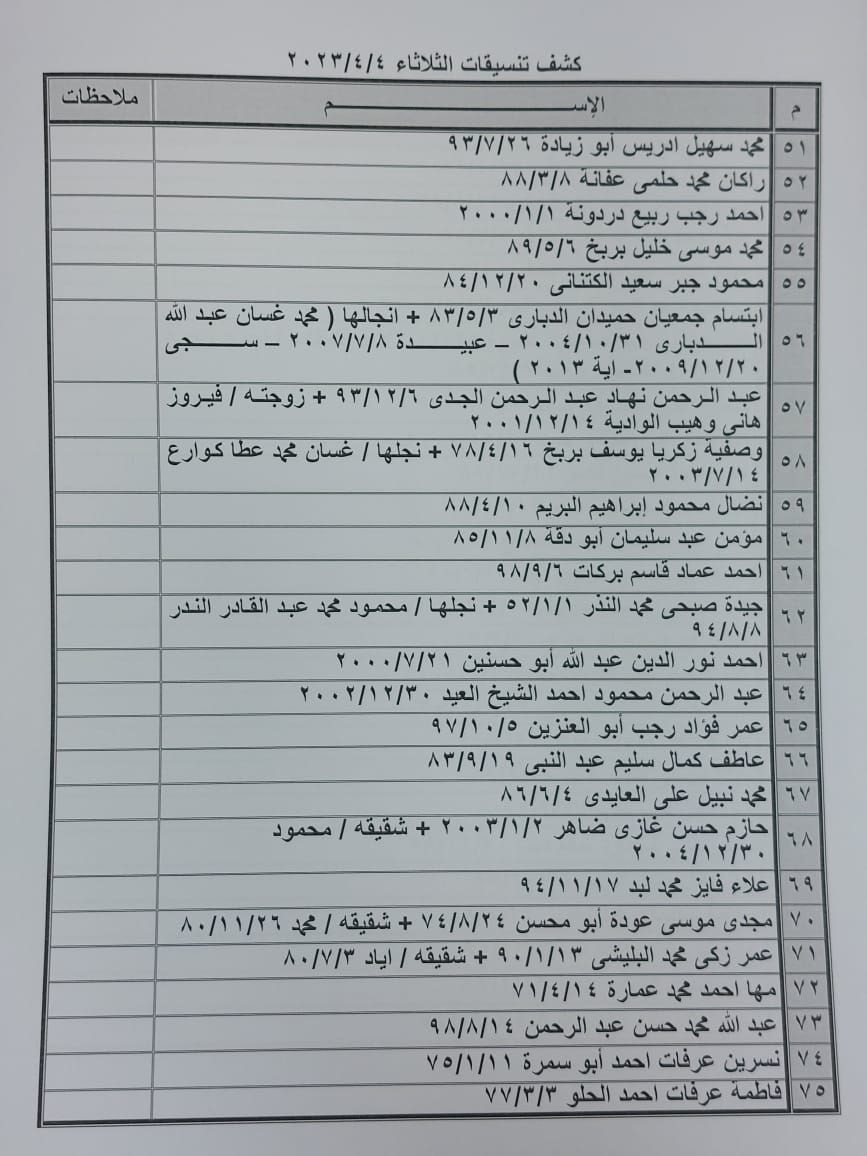 كشف تنسيقات الثلاثاء ٢٠٢٣/٤/٤
م الإســـــم ملاحظات
٥١ محمد سهيل ادريس أبو زيادة ٩٣/٧/٢٦
٥٢ راكان محمد حلمى عفانة ٨٨/٣/٨
٥٣ احمد رجب ربيع دردونة ٢٠٠٠/١/١
٥٤ محمد موسى خليل بربخ ٨٩/٥/٦
٥٥ محمود جبر سعيد الكتنانى ٨٤/١٢/٢٠
٥٦ ابتسام جمعيان حميدان الدبارى ٨٣/٥/٣ + انجالها ( محمد غسان عبد الله
الـــدبارى ٢٠٠٤/١٠/٣١ – عبيـــدة ٢٠٠٧/٧/٨ – ســـجى
٢٠٠٩/١٢/٢٠- اية ٢٠١٣ )
٥٧ عبد الرحمن نهاد عبد الرحمن الجدى ٩٣/١٢/٦ + زوجته / فيروز
هانى وهيب الوادية ٢٠٠١/١٢/١٤
٥٨ وصفية زكريا يوسف بربخ ٧٨/٤/١٦ + نجلها / غسان محمد عطا كوارع
٢٠٠٣/٧/١٤
٥٩ نضال محمود إبراهيم البريم ٨٨/٤/١٠
٦٠ مؤمن عبد سليمان أبو دقة ٨٥/١١/٨
٦١ احمد عماد قاسم بركات ٩٨/٩/٦
٦٢ جيدة صبحى محمد النذر ٥٢/١/١ + نجلها / محمود محمد عبد القادر الندر
٩٤/٨/٨
٦٣ احمد نور الدين عبد الله أبو حسنين ٢٠٠٠/٧/٢١
٦٤ عبد الرحمن محمود احمد الشيخ العيد ٢٠٠٢/١٢/٣٠
٦٥ عمر فؤاد رجب أبو العنزين ٩٧/١٠/٥
٦٦ عاطف كمال سليم عبد النبى ٨٣/٩/١٩
٦٧ محمد نبيل على العايدى ٨٦/٦/٤
٦٨ حازم حسن غازى ضاهر ٢٠٠٣/١/٢ + شقيقه / محمود
٢٠٠٤/١٢/٣٠
٦٩ علاء فايز محمد لبد ٩٤/١١/١٧
٧٠ مجدى موسى عودة أبو محسن ٧٤/٨/٢٤ + شقيقه / محمد ٨٠/١١/٢٦
٧١ عمر زكى محمد البليشى ٩٠/١/١٣ + شقيقه / اياد ٨٠/٧/٣
٧٢ مها احمد محمد عمارة ٧١/٤/١٤
٧٣ عبد الله محمد حسن عبد الرحمن ٩٨/٨/١٤
٧٤ نسرين عرفات احمد أبو سمرة ٧٥/١/١١
٧٥ فاطمة عرفات احمد الحلو ٧٧/٣/٣